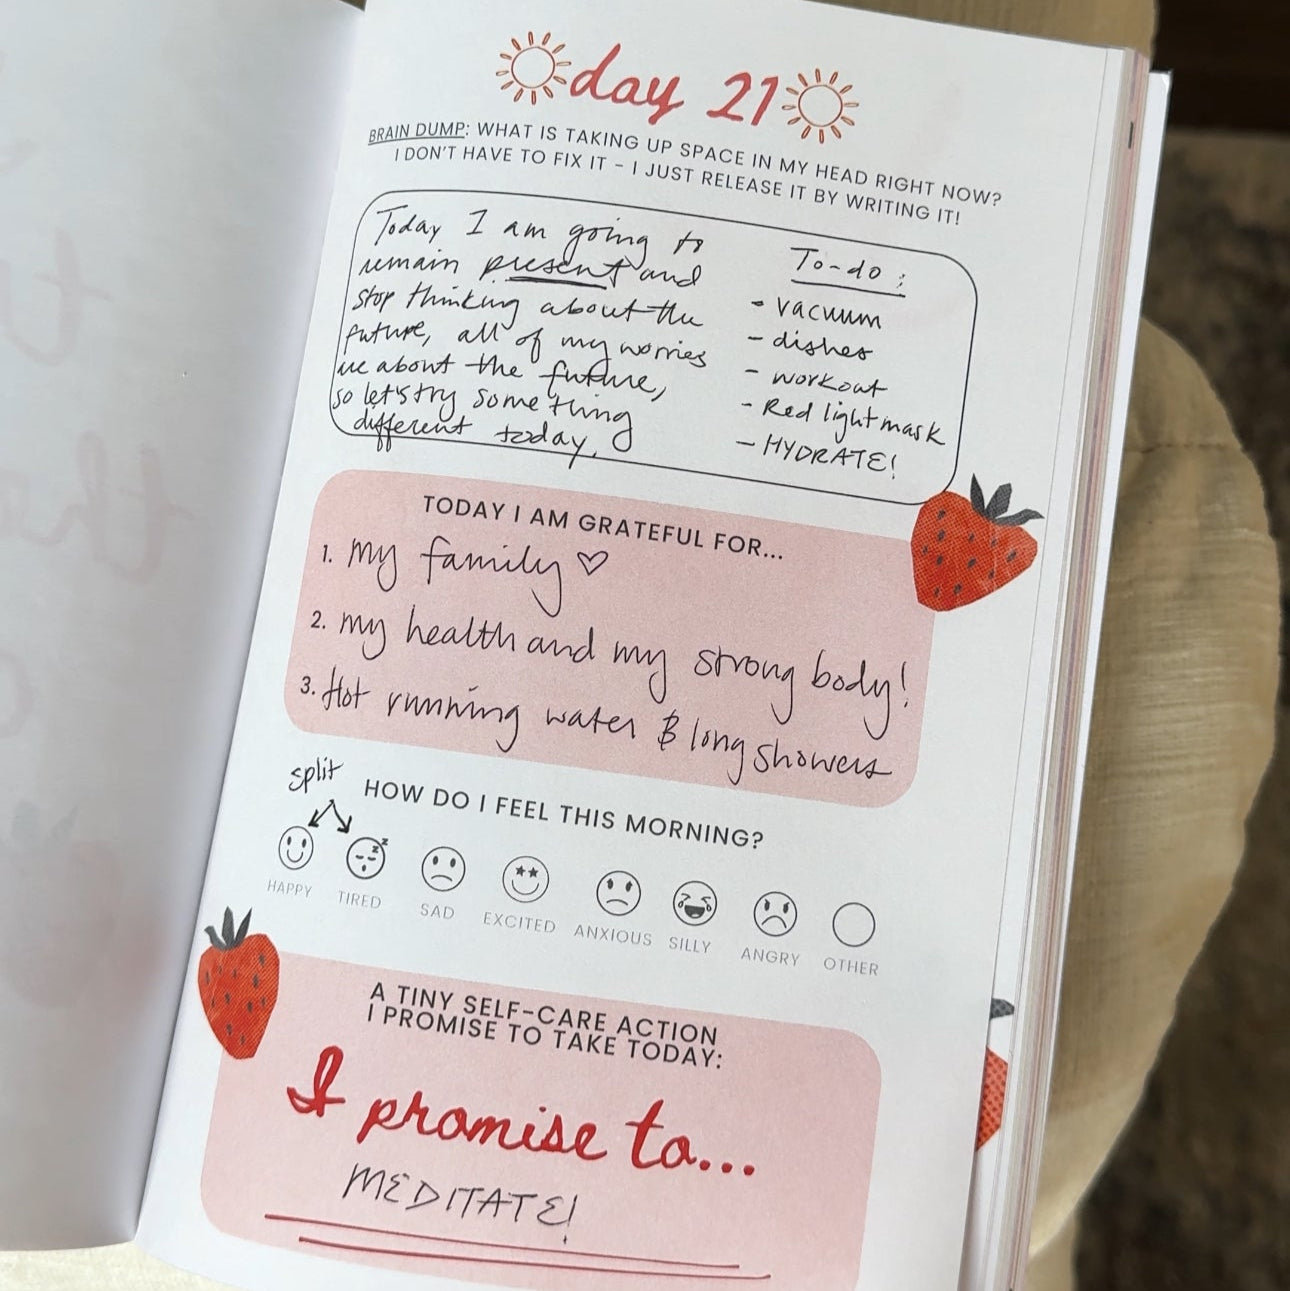 day 21
BRAIN DUMP: WHAT IS TAKING UP SPACE IN MY HEAD RIGHT NOW?
I DON'T HAVE TO FIX IT - I JUST RELEASE IT BY WRITING IT!
Today I am going to
remain present and
stop thinking about the
future, all of my worries
are about the future,
so let's try something
different today.
To-do:
- vacuum
- dishes
- workout
- Red light mask
- HYDRATE!
TODAY I AM GRATEFUL FOR...
1. my family ♡
2. my health and my strong body!
3. Hot running water & long showers
split
HOW DO I FEEL THIS MORNING?
HAPPY TIRED SAD EXCITED ANXIOUS SILLY ANGRY OTHER
A TINY SELF-CARE ACTION
I PROMISE TO TAKE TODAY:
I promise to...
MEDITATE!